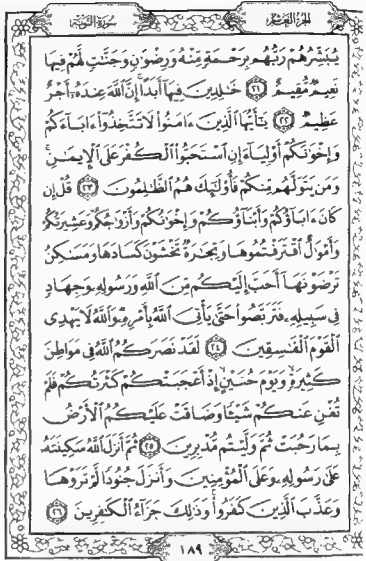 سورة التوبة الجزء العاشر
يُبَشِّرُهُمْ رَبُّهُم بِرَحْمَةٍ مِّنْهُ وَرِضْوَٰنٍ وَجَنَّٰتٍ لَّهُمْ فِيهَا
نَعِيمٌ مُّقِيمٌ ٢١ خَٰلِدِينَ فِيهَآ أَبَدًا إِنَّ ٱللَّهَ عِندَهُۥٓ أَجْرٌ
عَظِيمٌ ٢٢ يَٰٓأَيُّهَا ٱلَّذِينَ ءَامَنُوا۟ لَا تَتَّخِذُوٓا۟ ءَابَآءَكُمْ
وَإِخْوَٰنَكُمْ أَوْلِيَآءَ إِنِ ٱسْتَحَبُّوا۟ ٱلْكُفْرَ عَلَى ٱلْإِيمَٰنِ ۚ
وَمَن يَتَوَلَّهُم مِّنكُمْ فَأُو۟لَٰٓئِكَ هُمُ ٱلظَّٰلِمُونَ ٢٣ قُلْ إِن
كَانَ ءَابَآؤُكُمْ وَأَبْنَآؤُكُمْ وَإِخْوَٰنُكُمْ وَأَزْوَٰجُكُمْ وَعَشِيرَتُكُمْ
وَأَمْوَٰلٌ ٱقْتَرَفْتُمُوهَا وَتِجَٰرَةٌ تَخْشَوْنَ كَسَادَهَا وَمَسَٰكِنُ
تَرْضَوْنَهَآ أَحَبَّ إِلَيْكُم مِّنَ ٱللَّهِ وَرَسُولِهِۦ وَجِهَادٍ
فِى سَبِيلِهِۦ فَتَرَبَّصُوا۟ حَتَّىٰ يَأْتِىَ ٱللَّهُ بِأَمْرِهِۦ ۗ وَٱللَّهُ لَا يَهْدِى
ٱلْقَوْمَ ٱلْفَٰسِقِينَ ٢٤ لَقَدْ نَصَرَكُمُ ٱللَّهُ فِى مَوَاطِنَ
كَثِيرَةٍ ۙ وَيَوْمَ حُنَيْنٍ ۙ إِذْ أَعْجَبَتْكُمْ كَثْرَتُكُمْ فَلَمْ
تُغْنِ عَنكُمْ شَيْـًٔا وَضَاقَتْ عَلَيْكُمُ ٱلْأَرْضُ
بِمَا رَحُبَتْ ثُمَّ وَلَّيْتُم مُّدْبِرِينَ ٢٥ ثُمَّ أَنزَلَ ٱللَّهُ سَكِينَتَهُۥ
عَلَىٰ رَسُولِهِۦ وَعَلَى ٱلْمُؤْمِنِينَ وَأَنزَلَ جُنُودًا لَّمْ تَرَوْهَا
وَعَذَّبَ ٱلَّذِينَ كَفَرُوا۟ ۚ وَذَٰلِكَ جَزَآءُ ٱلْكَٰفِرِينَ ٢٦
١٨٩